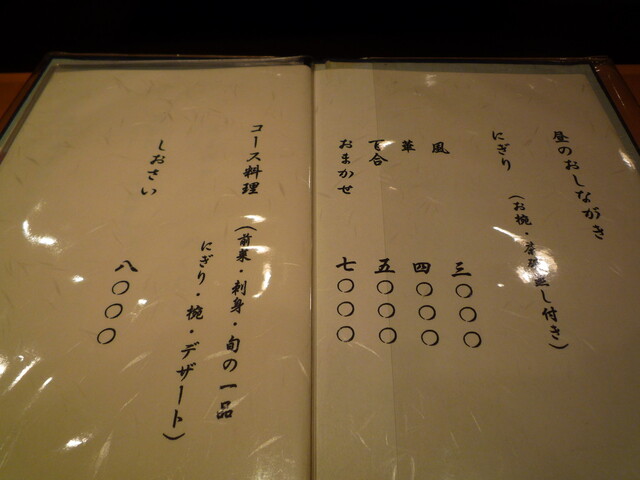 昼のおしながき
にぎり (お椀・茶碗蒸し付き)
風 三〇〇〇
華 四〇〇〇
百合 五〇〇〇
おまかせ 七〇〇〇
コース料理 (前菜・刺身・旬の一品
にぎり・椀・デザート)
しおさい 八〇〇〇